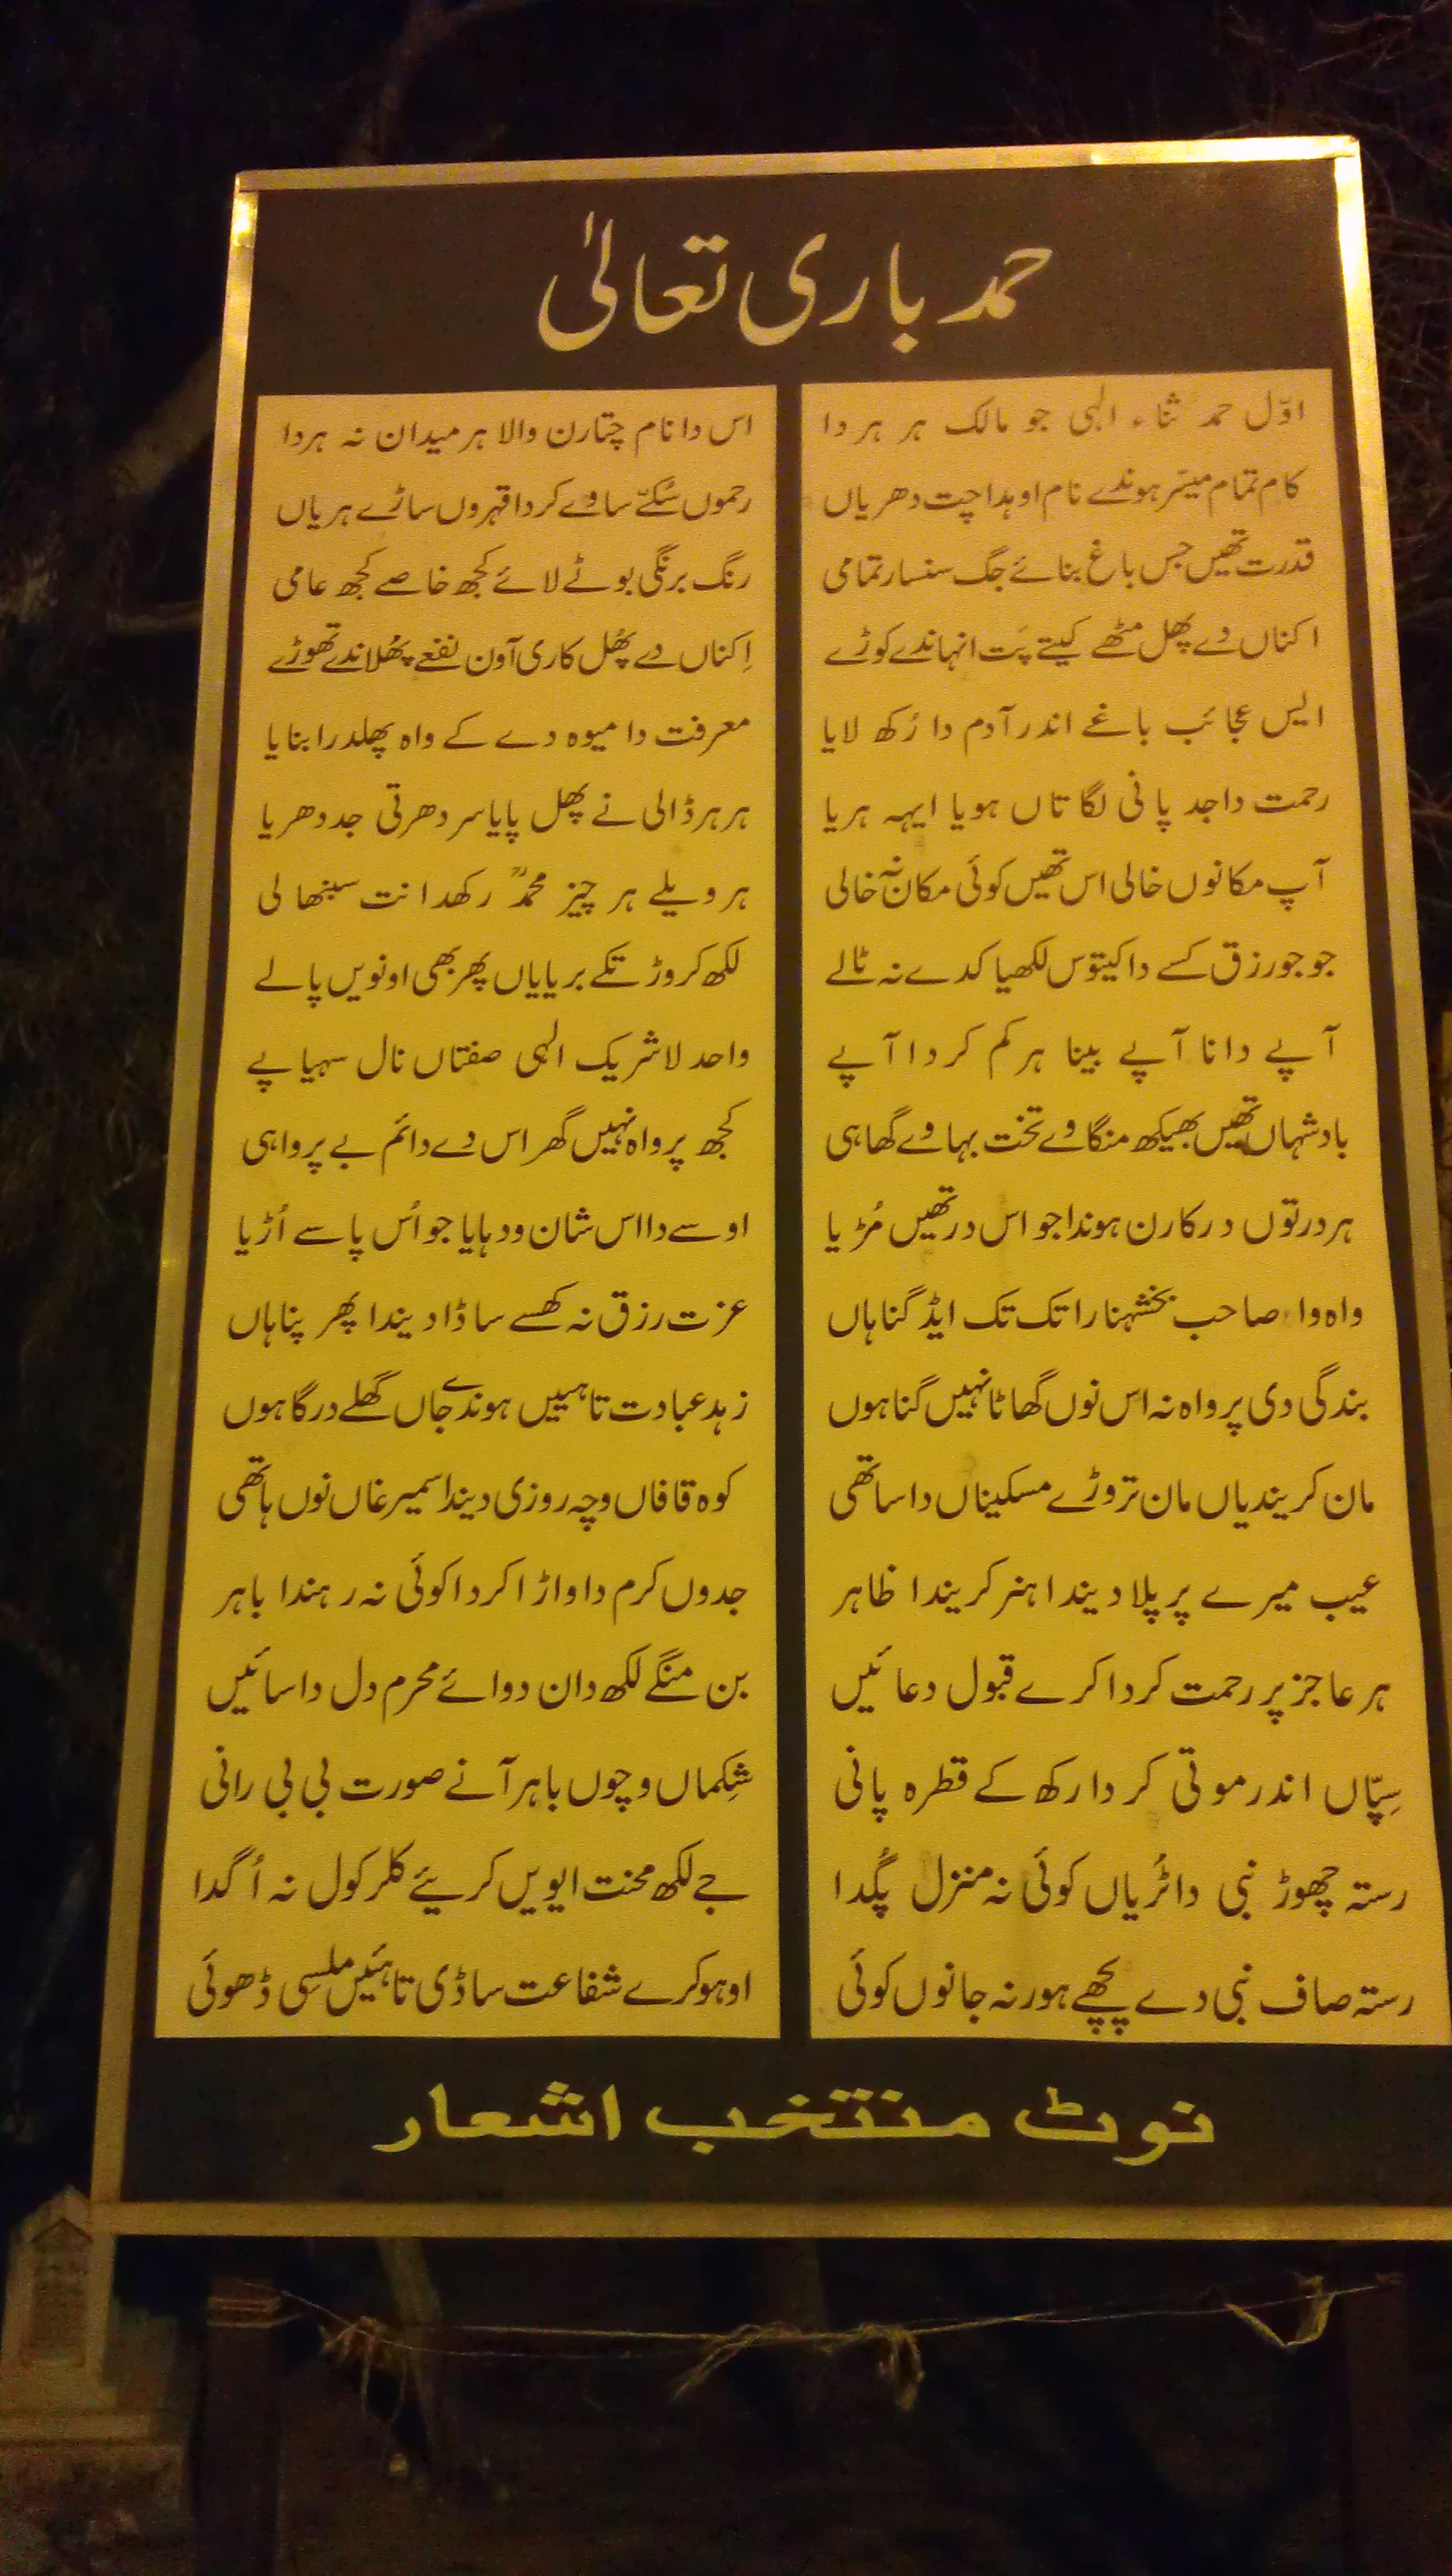 حمد باری تعالیٰ
اوّل حمد ثناء الہی جو مالک ہر ہر دا
اس دا نام چتارن والا ہر میدان نہ ہردا
کام تمام میسّر ہوندے نام اوہدا چت دھریاں
رحموں سُکّے ساوے کردا قہروں ساڑے ہریاں
قدرت تھیں جس باغ بنائے جگ سنسار تمامی
رنگ برنگی بوٹے لائے کجھ خاصے کجھ عامی
اکناں دے پھل مٹھے کیتے پَت انہاندے کوڑے
اِکناں دے پھُل کاری آون نفعے پھُلاندے تھوڑے
ایس عجائب باغے اندر آدم دا رُکھ لایا
معرفت دا میوہ دے کے واہ پھلدرا بنایا
رحمت دا جد پانی لگا تاں ہویا ایہہ ہریا
ہر ہر ڈالی نے پھل پایا سر دھرتی جد دھریا
آپ مکانوں خالی اس تھیں کوئی مکان نہ خالی
ہر ویلے ہر چیز محمدؒ رکھدا نت سبنھالی
جو جو رزق کسے دا کیتوس لکھیا کدے نہ ٹالے
لکھ کروڑ تکے بریایاں پھر بھی اونویں پالے
آپے دانا آپے بینا ہر کم کردا آپے
واحد لاشریک الہی صفتاں نال سہیاپے
بادشہاں تھیں بھیکھ منگاوے تخت بہاوے گھاہی
کجھ پرواہ نہیں گھر اس دے دائم بے پرواہی
ہر در توں درکارن ہوندا جو اس در تھیں مُڑیا
اوسے دا اس شان ودہایا جو اُس پاسے اُڑیا
واہ وا صاحب بخشہنارا تک تک ایڈ گناہاں
عزت رزق نہ کھسے ساڈا دیندا پھر پناہاں
بندگی دی پرواہ نہ اس نوں گھاٹا نہیں گناہوں
زہد عبادت تاہییں ہوندے جاں گھلے درگاہوں
مان کریندیاں مان تروڑے مسکیناں دا ساتھی
کوہ قافاں وچہ روزی دیندا سمیرغاں نوں ہاتھی
عیب میرے پر پلا دیندا ہنر کریندا ظاہر
جدوں کرم دا واڑا کردا کوئی نہ رہندا باہر
ہر عاجز پر رحمت کردا کرے قبول دعائیں
بن منگے لکھ دان دوائے محرم دل دا سائیں
سِپّاں اندر موتی کردا رکھ کے قطرہ پانی
شِکماں وچوں باہر آنے صورت بی بی رانی
رستہ چھوڑ نبی دا ٹُریاں کوئی نہ منزل پُگدا
جے لکھ محنت ایویں کریئے کلر کول نہ اُگدا
رستہ صاف نبی دے پچھے ہور نہ جانوں کوئی
اوہو کرے شفاعت ساڈی تاہئیں ملسی ڈھوئی
نوٹ منتخب اشعار